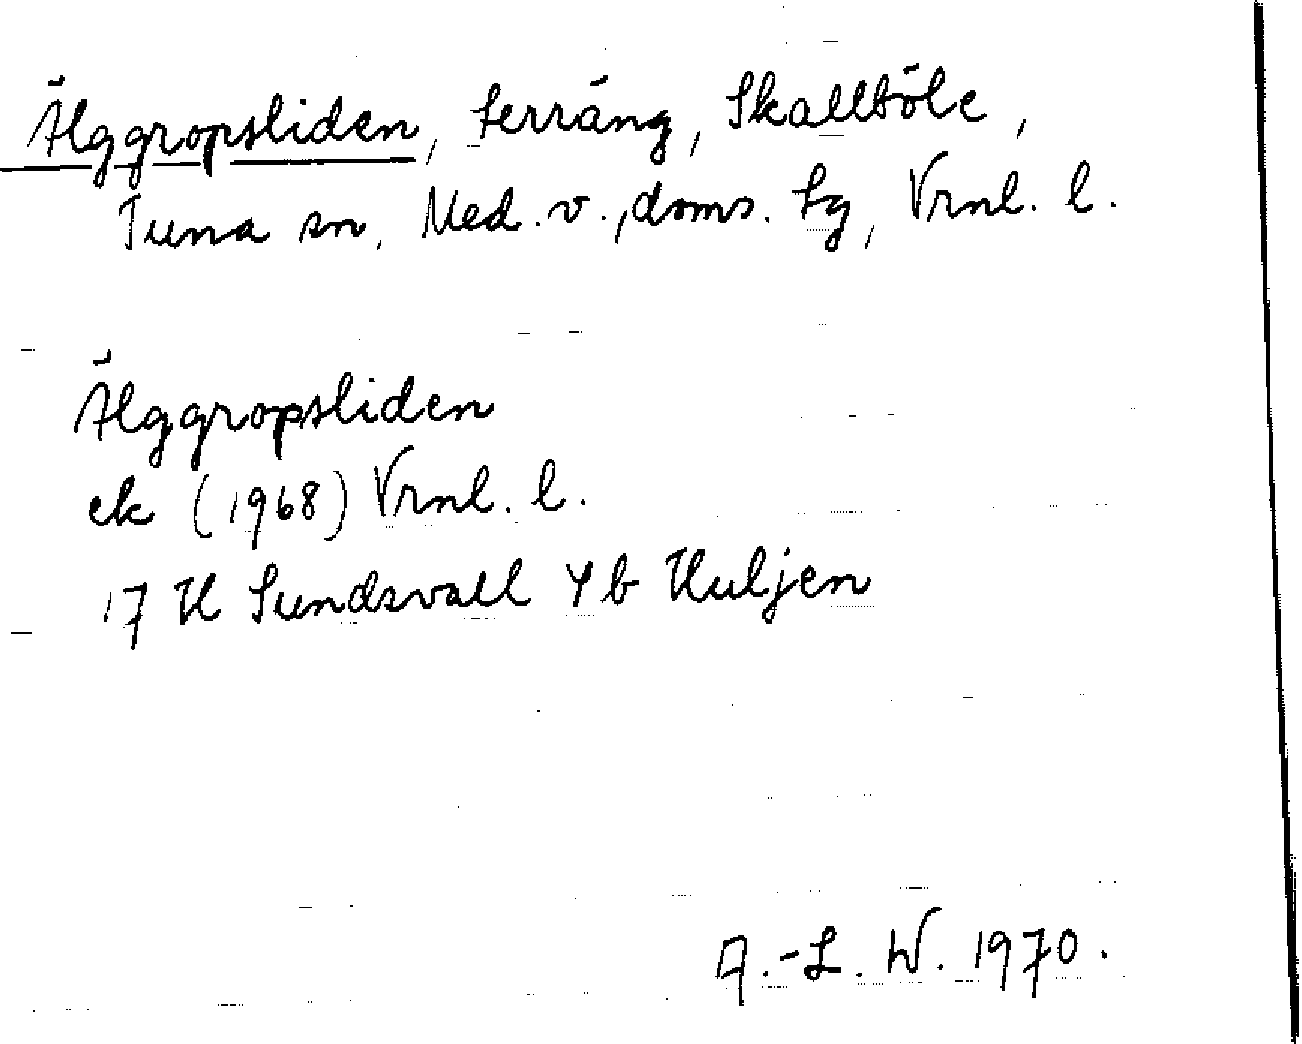 Älggropsliden, terräng, Skallböle,
Tuna sn, Med. v., doms. tg, Vrnl. l.
Älggropsliden
ek (1968) Vrnl. l.
17 H Sundsvall 4 b Huljen
A.-L. W. 1970.